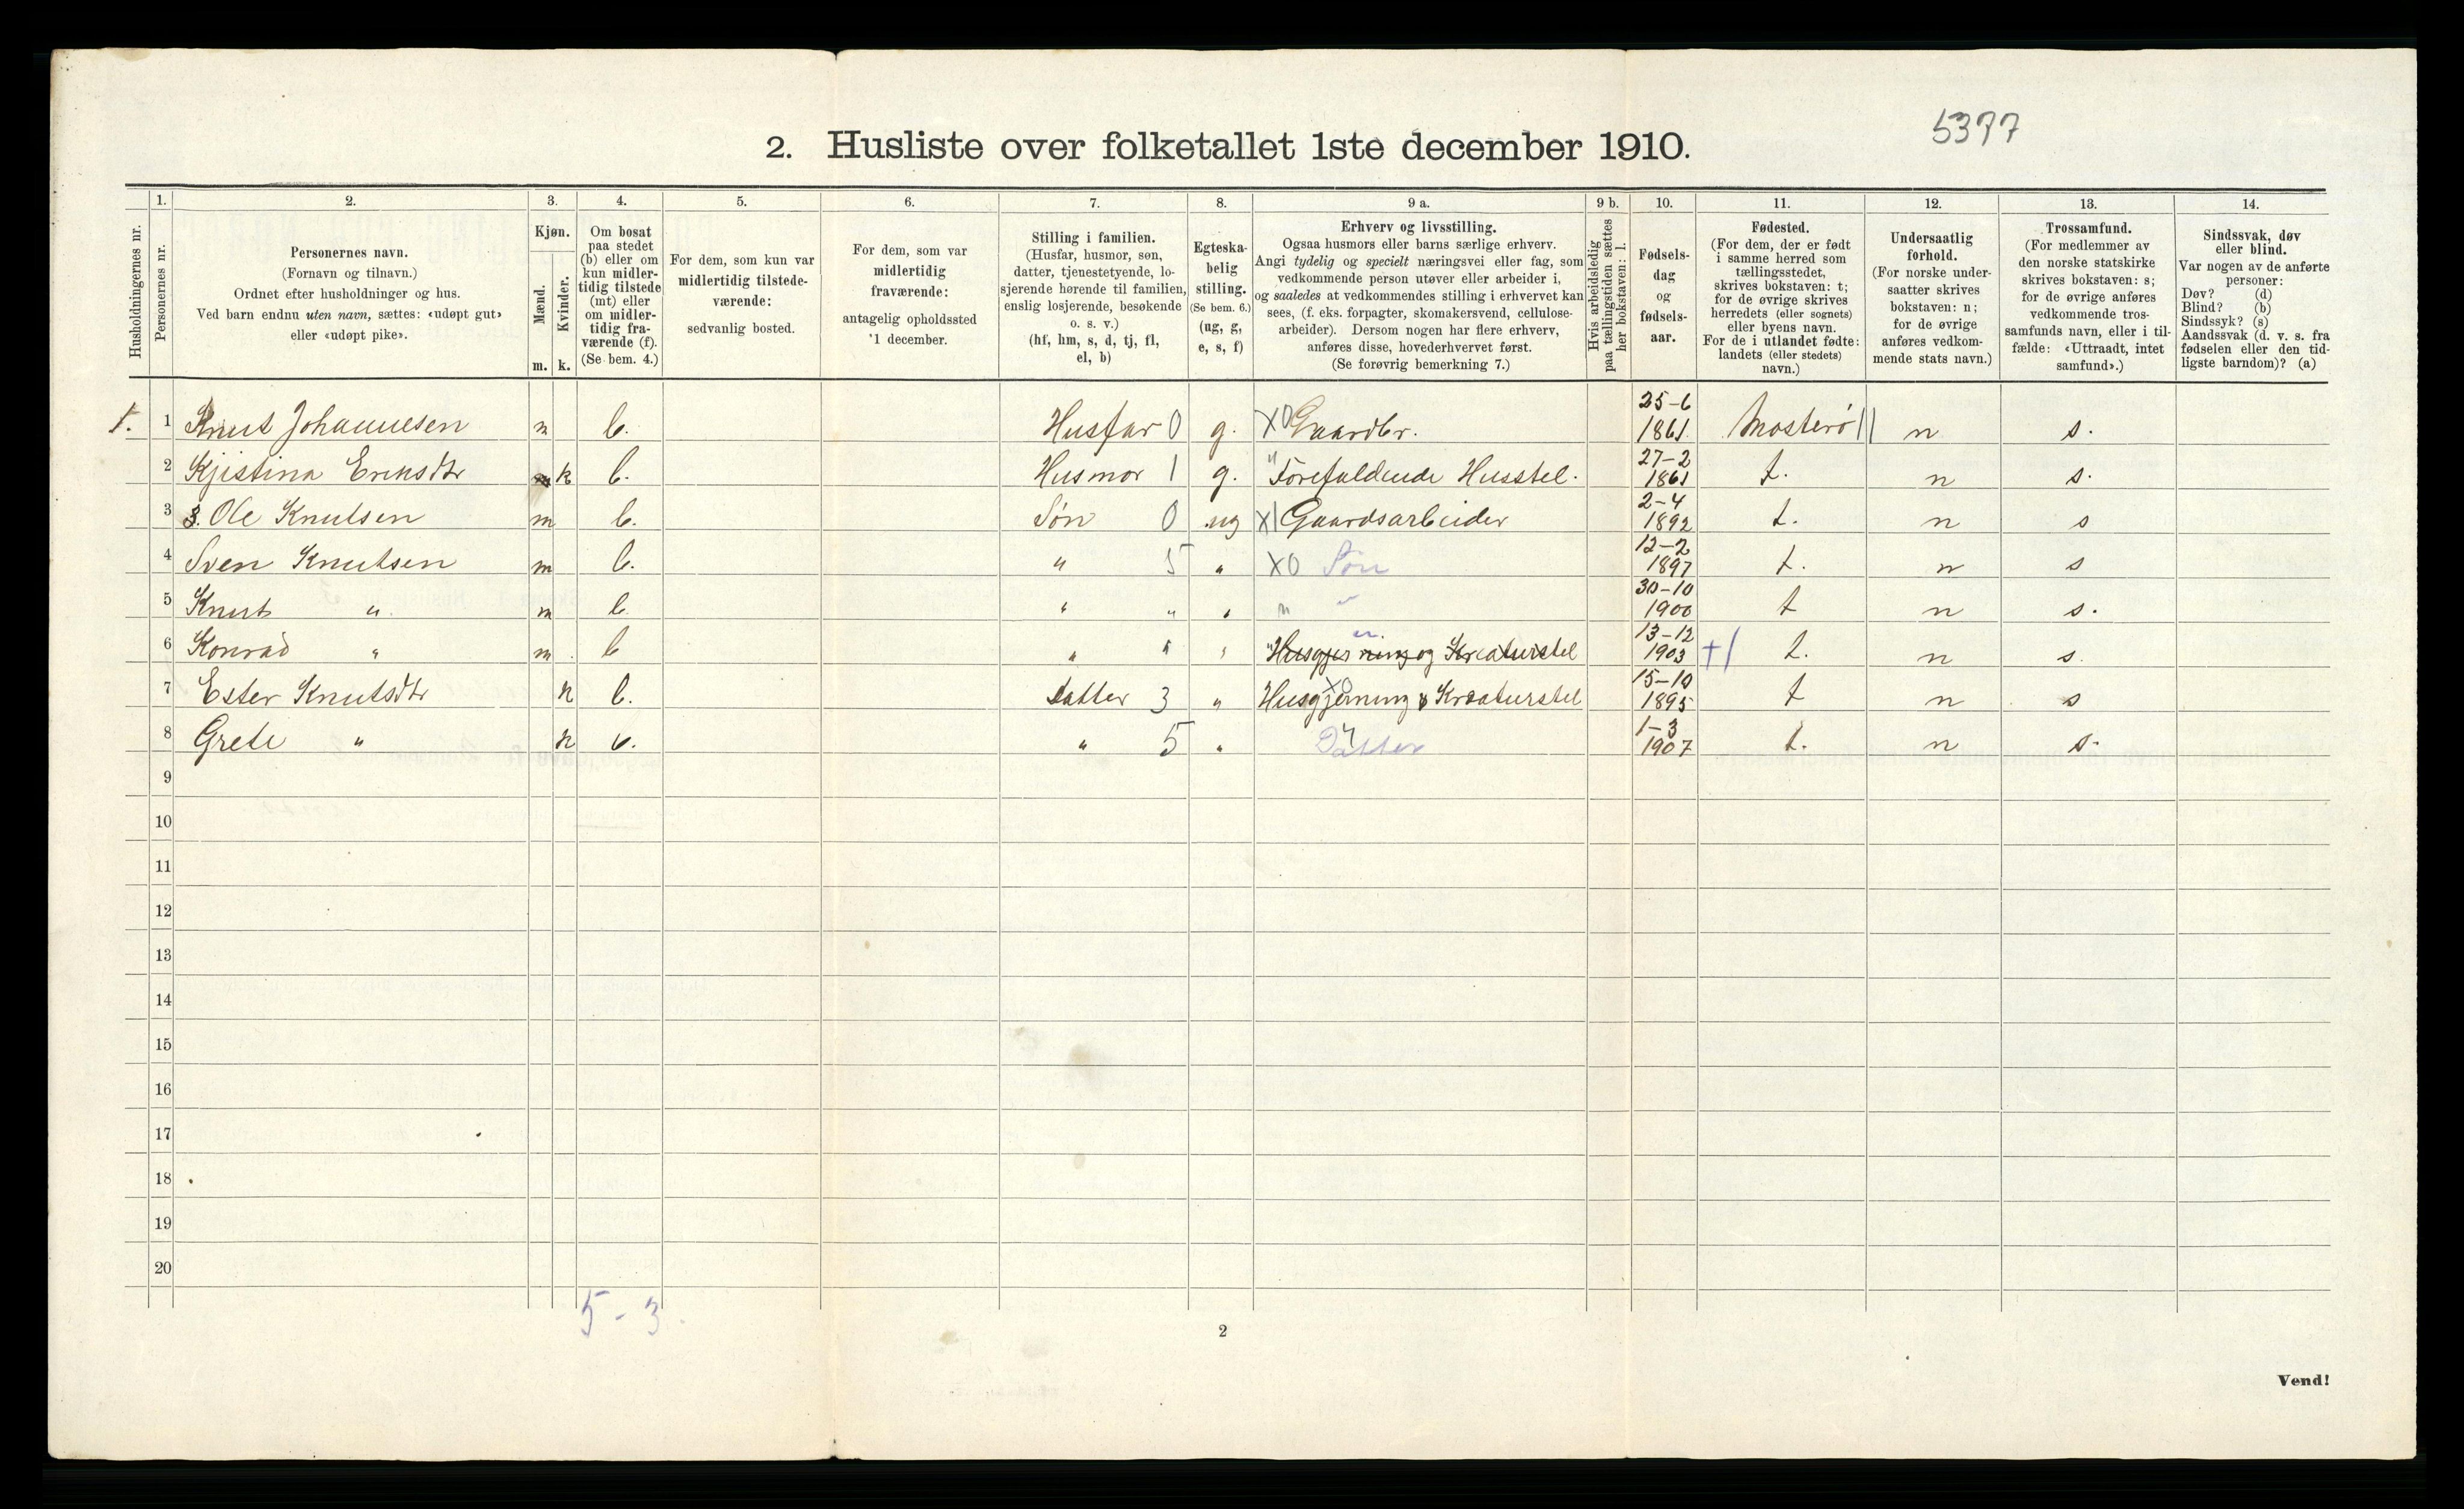 5377
2. Husliste over folketallet 1ste december 1910.
1. 2. 3. 4. 5. 6. 7. 8. 9 a. 9 b. 10. 11. 12. 13. 14.
Husholdningernes nr.
Personernes nr.
Personernes navn.
(Fornavn og tilnavn.)
Ordnet efter husholdninger og hus.
Ved barn endnu uten navn, sættes: «udøpt gut»
eller «udøpt pike».
Kjøn.
Mænd.
Kvinder.
m. k.
Om bosat
paa stedet
(b) eller om
kun midler-
tidig tilstede
(mt) eller
om midler-
tidig fra-
værende (f).
(Se bem. 4.)
For dem, som kun var
midlertidig tilstede-
værende:
sedvanlig bosted.
For dem, som var
midlertidig
fraværende:
antagelig opholdssted
1 december.
Stilling i familien.
(Husfar, husmor, søn,
datter, tjenestetyende, lo-
sjerende hørende til familien,
enslig losjerende, besøkende
o. s. v.)
(hf, hm, s, d, tj, fl,
el, b)
Egteska-
belig
stilling.
(Se bem. 6.)
(ug, g,
e, s, f)
Erhverv og livsstilling.
Ogsaa husmors eller barns særlige erhverv.
Angi tydelig og specielt næringsvei eller fag, som
vedkommende person utøver eller arbeider i,
og saaledes at vedkommendes stilling i erhvervet kan
sees, (f. eks. forpagter, skomakersvend, cellulose-
arbeider). Dersom nogen har flere erhverv,
anføres disse, hovederhvervet først.
(Se forøvrig bemerkning 7.)
Hvis arbeidsledig
paa tællingstiden sættes
her bokstaven: l.
Fødsels-
dag
og
fødsels-
aar.
Fødested.
(For dem, der er født
i samme herred som
tællingsstedet,
skrives bokstaven: t;
for de øvrige skrives
herredets (eller sognets)
eller byens navn.
For de i utlandet fødte:
landets (eller stedets)
navn.)
Undersaatlig
forhold.
(For norske under-
saatter skrives
bokstaven: n;
for de øvrige
anføres vedkom-
mende stats navn.)
Trossamfund.
(For medlemmer av
den norske statskirke
skrives bokstaven: s;
for de øvrige anføres
vedkommende tros-
samfunds navn, eller i til-
fælde: «Uttraadt, intet
samfund».)
Sindssvak, døv
eller blind.
Var nogen av de anførte
personer:
Døv? (d)
Blind? (b)
Sindssyk? (s)
Aandssvak (d. v. s. fra
fødselen eller den tid-
ligste barndom)? (a)
1. 1 Knut Johannesen m b. Husfar 0 g. X0 Gaardbr. 25-6 1861 Mosterö || n s.
2 Kjistina Eriksdtr k b. Husmor 1 g. " Forefaldende Husstel. 27-2 1861 t. n s.
3 3. Ole Knutsen m b. Søn 0 ug X1 Gaardsarbeider 2-4 1892 t. n s
4 Sven Knutsen m b. " 5 " X0 Søn 12-2 1897 t. n s
5 Knut " m b. " " " " " 30-10 1900 t n s.
6 Konrad " m b " " " " Husgjerning og Kreaturstel 13-12 1903 +/ t. n s.
7 Ester Knutsdtr k b. datter 3 " Husgjerning & Kreaturstel X0 15-10 1895 t n s
8 Grete " k b. " 5 " Datter 1-3 1907 t. n s.
9
10
11
12
13
14
15
16
17
18
19
20
5 - 3.
2
Vend!